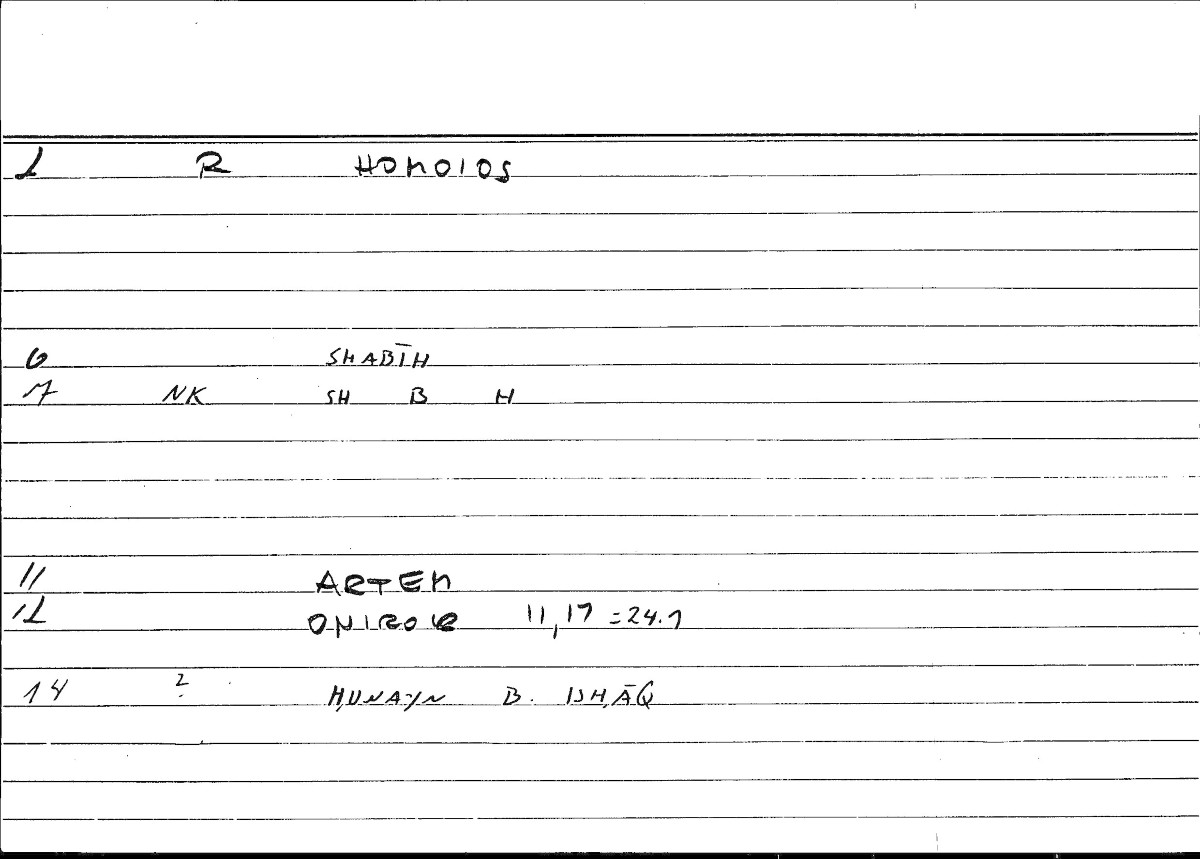 1 R HOMOIOS
6 SHABĪH
7 NK SH B H
11 ARTEM
12 ONIROK 11,17 =24.1
14 ? ḤUNAYN B. ISḤĀQ